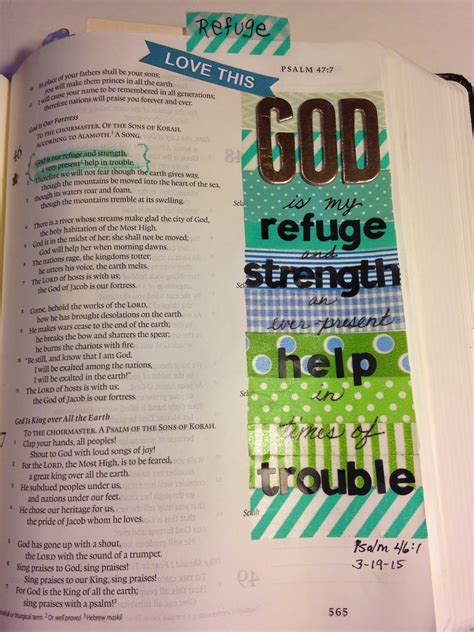 Refuge
LOVE THIS
PSALM 47:7
In place of your fathers shall be your sons;
you will make them princes in all the earth.
I will cause your name to be remembered in all generations;
therefore nations will praise you forever and ever.
God Is Our Fortress
TO THE CHOIRMASTER. OF THE SONS OF KORAH.
ACCORDING TO ALAMOTH.¹ A SONG.
46
God is our refuge and strength,
a very present² help in trouble.
Therefore we will not fear though the earth gives way,
though the mountains be moved into the heart of the sea,
though its waters roar and foam,
though the mountains tremble at its swelling. Selah
4 There is a river whose streams make glad the city of God,
the holy habitation of the Most High.
5 God is in the midst of her; she shall not be moved;
God will help her when morning dawns.
6 The nations rage, the kingdoms totter;
he utters his voice, the earth melts.
7 The LORD of hosts is with us;
the God of Jacob is our fortress. Selah
8 Come, behold the works of the LORD,
how he has brought desolations on the earth.
9 He makes wars cease to the end of the earth;
he breaks the bow and shatters the spear;
he burns the chariots with fire.
10 "Be still, and know that I am God.
I will be exalted among the nations,
I will be exalted in the earth!"
11 The LORD of hosts is with us;
the God of Jacob is our fortress. Selah
God Is King over All the Earth
TO THE CHOIRMASTER. A PSALM OF THE SONS OF KORAH.
1 Clap your hands, all peoples!
Shout to God with loud songs of joy!
2 For the LORD, the Most High, is to be feared,
a great king over all the earth.
3 He subdued peoples under us,
and nations under our feet.
4 He chose our heritage for us,
the pride of Jacob whom he loves. Selah
5 God has gone up with a shout,
the LORD with the sound of a trumpet.
6 Sing praises to God, sing praises!
Sing praises to our King, sing praises!
7 For God is the King of all the earth;
sing praises with a psalm!³
or liturgical term ² Or well proved ³ Hebrew maskil
GOD
is my
refuge
and
strength
an
ever-present
help
in
times of
trouble
Psalm 46:1
3-19-15
565